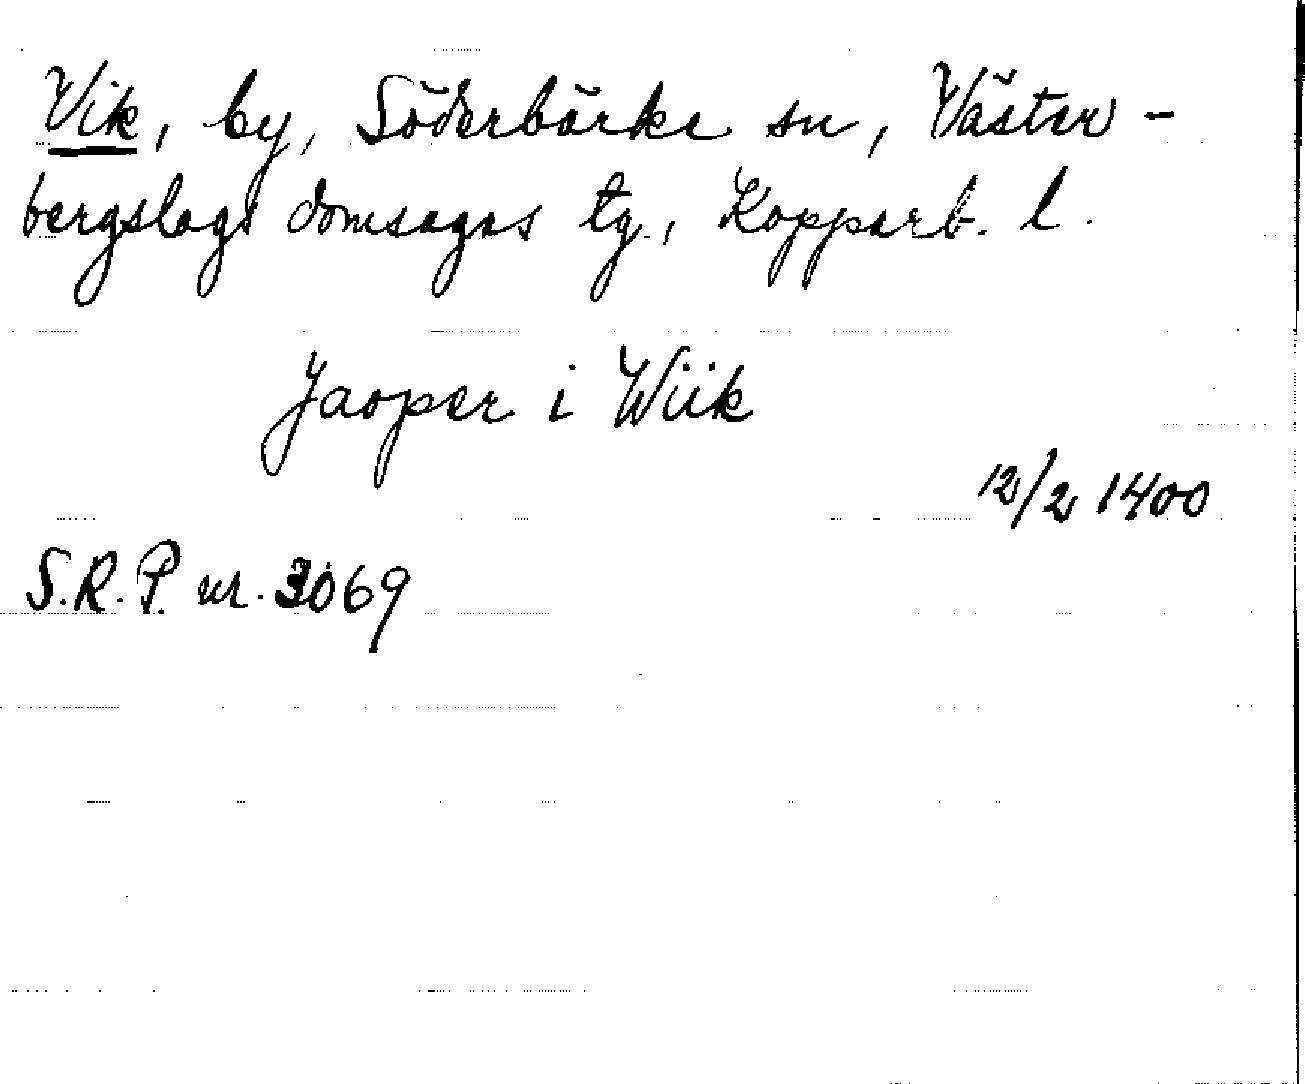 Vik, by, Söderbärke sn, Väster-
bergslags domsagas tg., Kopparb. l.
Jaoper i Wiik
12/2 1400
S.R.P. nr. 3069